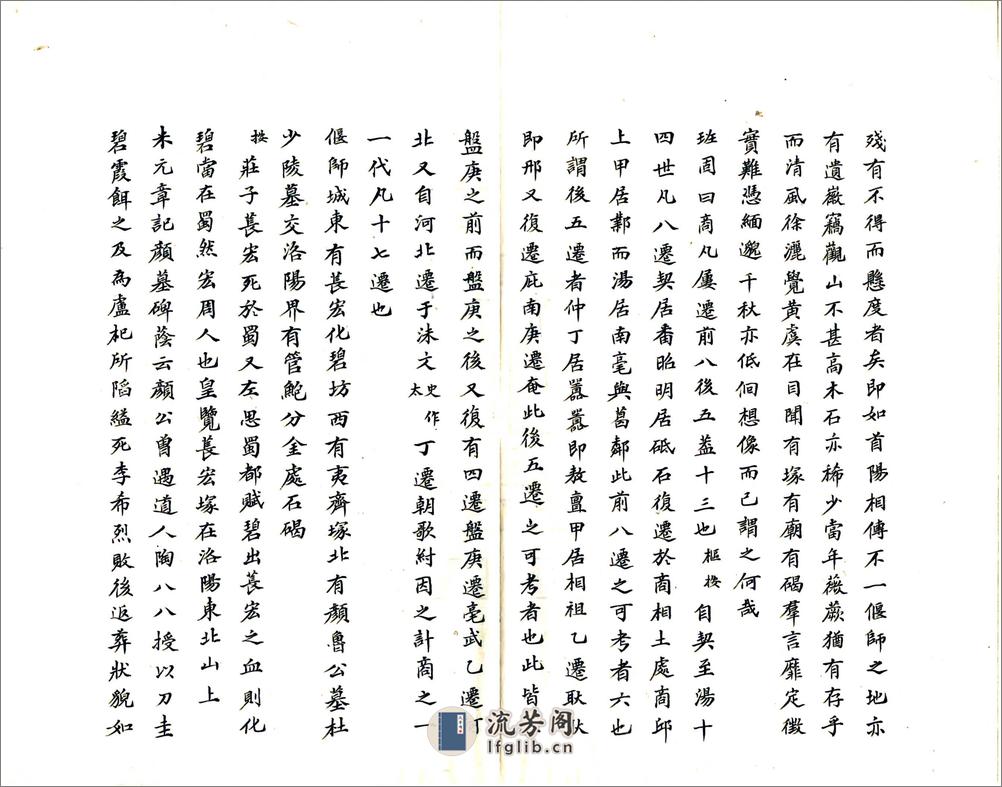 殘有不得而懸度者矣即如首陽相傳不一偃師之地亦
有遺巖竊觀山不甚高木石亦稀少當年薇蕨猶有存乎
而清風徐灑覺黃虞在目聞有塚有廟有碣羣言靡定徵
實難憑緬邈千秋亦低佪想像而已謂之何哉
班固曰商凡屢遷前八後五葢十三也樞按自契至湯十
四世凡八遷契居番昭明居砥石復遷於商相土處商邱
上甲居鄴而湯居南亳與葛鄰此前八遷之可考者六也
所謂後五遷者仲丁居囂囂即敖亶甲居相祖乙遷耿耿
即邢又復遷庇南庚遷奄此後五遷之可考者也此皆
盤庚之前而盤庚之後又復有四遷盤庚遷亳武乙遷河
北又自河北遷于沬文太史作丁遷朝歌紂因之計商之一
一代凡十七遷也
偃師城東有萇宏化碧坊西有夷齊塚北有顏魯公墓杜
少陵墓交洛陽界有管鮑分金處石碣
按莊子萇宏死於蜀又左思蜀都賦碧出萇宏之血則化
碧當在蜀然宏周人也皇覽萇宏塚在洛陽東北山上
米元章記顏墓碑蔭云顏公曾遇道人陶八八授以刀圭
碧霞餌之及為盧杞所陷縊死李希烈敗後返葬狀貌如
流芳阁
lfglib.cn